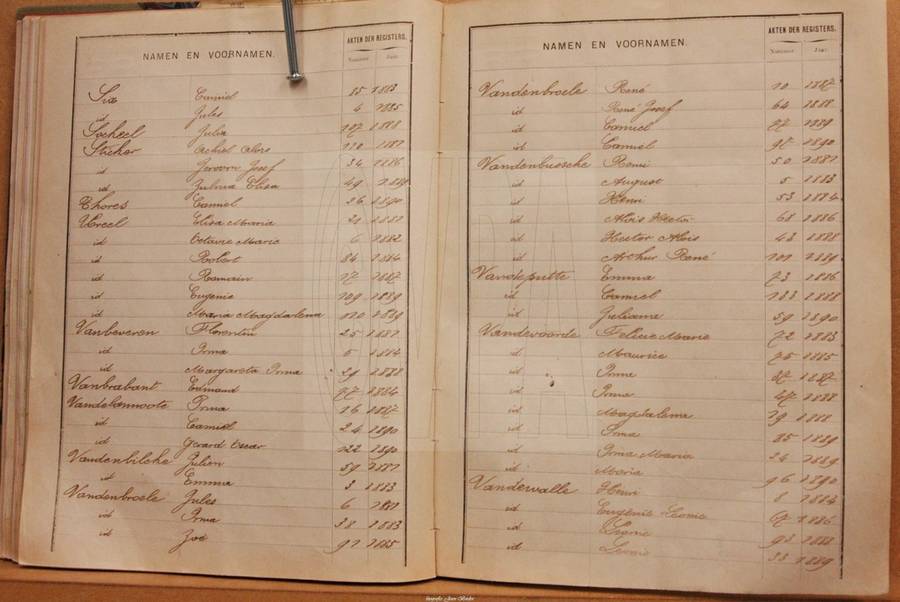 NAMEN EN VOORNAMEN. AKTEN DER REGISTERS.
Nummer Jaar
Six Camiel 85 1883
id Jules 4 1885
Socheel Julia 107 1888
Sticher Achiel Aloïs 110 1887
id Jeroom Josef 34 1886
id Zulma Elisa 49
Thores Camiel 26 1890
Ureel Elisa Maria 1881
id Octavie Marie 6 1882
id Robert 84 1884
id Romain 17 1887
id Eugenie 109 1889
id Maria Magdalena 110 1889
Vanbeveren Florentin 25 1881
id Irma 5 1884
id Margareta Irma 29 1888
Vanbrabant Edmond 77 1884
Vandelannoote Irma 16 1887
id Camiel 24 1890
id Gerard Oscar 122 1890
Vandenbilcke Julien 59 1881
id Emma 3 1883
Vandenbroele Jules 6 1881
id Irma 38 1883
id Zoé 91 1885
NAMEN EN VOORNAMEN. AKTEN DER REGISTERS.
Nummer Jaar
Vandenbroele René 10 1887
id René Josef 64 1888
id Camiel 77 1889
id Camiel 1890
Vandenbussche Remi 50 1881
id August 5 1883
id Henri 53 1884
id Aloïs Hector 68 1886
id Hector Aloïs 43 1888
id Arthur René 101 1889
Vandeputte Emma 73 1886
id Camiel 133 1888
id Juliana 59 1890
Vandevoorde Felicie Marie 72 1883
id Maurice 75 1885
id Irma 37 1887
id Irma 47 1888
id Magdalena 79 1888
id Irma 85 1889
id Irma Maria 24 1889
id Maria 96 1890
Vandewalle Henri 8 1884
id Eugenie Leonie 67 1886
id Leonie 93 1888
id Leonie 33 1889